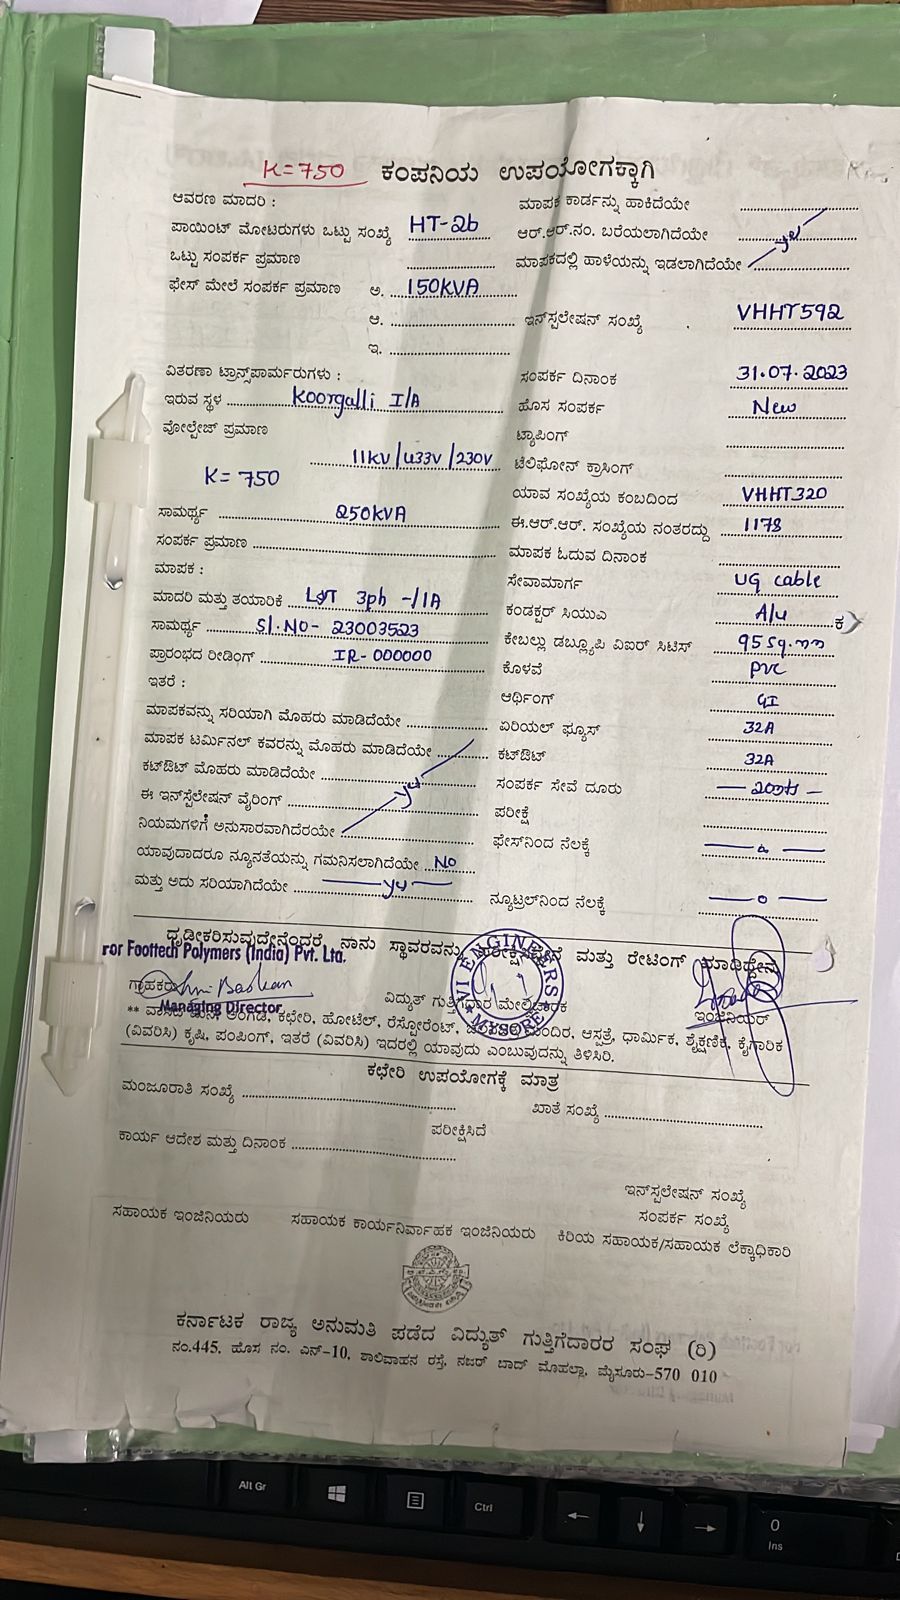 K=750 ಕಂಪನಿಯ ಉಪಯೋಗಕ್ಕಾಗಿ
ಆವರಣ ಮಾದರಿ :
ಪಾಯಿಂಟ್ ಮೋಟರುಗಳು ಒಟ್ಟು ಸಂಖ್ಯೆ HT-2b
ಒಟ್ಟು ಸಂಪರ್ಕ ಪ್ರಮಾಣ
ಫೇಸ್ ಮೇಲೆ ಸಂಪರ್ಕ ಪ್ರಮಾಣ ಅ. 150KVA
ಆ.
ಇ.
ವಿತರಣಾ ಟ್ರಾನ್ಸ್‌ಪಾರ್ಮರುಗಳು :
ಇರುವ ಸ್ಥಳ Koorgalli I/A
ವೋಲ್ಟೇಜ್ ಪ್ರಮಾಣ
11KV/433V/230V
K= 750
ಸಾಮರ್ಥ್ಯ 250KVA
ಸಂಪರ್ಕ ಪ್ರಮಾಣ
ಮಾಪಕ :
ಮಾದರಿ ಮತ್ತು ತಯಾರಿಕೆ L&T 3ph -/1A
ಸಾಮರ್ಥ್ಯ Sl.NO- 23003523
ಪ್ರಾರಂಭದ ರೀಡಿಂಗ್ IR-000000
ಇತರೆ :
ಮಾಪಕವನ್ನು ಸರಿಯಾಗಿ ಮೊಹರು ಮಾಡಿದೆಯೇ
ಮಾಪಕ ಟರ್ಮಿನಲ್ ಕವರನ್ನು ಮೊಹರು ಮಾಡಿದೆಯೇ
ಕಟ್ಔಟ್ ಮೊಹರು ಮಾಡಿದೆಯೇ
ಈ ಇನ್‌ಸ್ಟಲೇಷನ್ ವೈರಿಂಗ್ yes
ನಿಯಮಗಳಿಗೆ ಅನುಸಾರವಾಗಿದೆರಯೇ
ಯಾವುದಾದರೂ ನ್ಯೂನತೆಯನ್ನು ಗಮನಿಸಲಾಗಿದೆಯೇ No
ಮತ್ತು ಅದು ಸರಿಯಾಗಿದೆಯೇ yes
ಮಾಪಕ ಕಾರ್ಡನ್ನು ಹಾಕಿದೆಯೇ
ಆರ್.ಆರ್.ನಂ. ಬರೆಯಲಾಗಿದೆಯೇ yes
ಮಾಪಕದಲ್ಲಿ ಹಾಳೆಯನ್ನು ಇಡಲಾಗಿದೆಯೇ
ಇನ್‌ಸ್ಟಲೇಷನ್ ಸಂಖ್ಯೆ VHHT592
ಸಂಪರ್ಕ ದಿನಾಂಕ 31.07.2023
ಹೊಸ ಸಂಪರ್ಕ New
ಟ್ಯಾಪಿಂಗ್
ಟೆಲಿಫೋನ್ ಕ್ರಾಸಿಂಗ್
ಯಾವ ಸಂಖ್ಯೆಯ ಕಂಬದಿಂದ VHHT320
ಈ.ಆರ್.ಆರ್. ಸಂಖ್ಯೆಯ ನಂತರದ್ದು 1178
ಮಾಪಕ ಓದುವ ದಿನಾಂಕ
ಸೇವಾಮಾರ್ಗ UG cable
ಕಂಡಕ್ಟರ್ ಸಿಯುಎ A/u ಕ
ಕೇಬಲ್ಲು ಡಬ್ಲ್ಯೂಪಿ ವಿಐರ್ ಸಿಟಿಸ್ 95Sq.mm
ಕೊಳವೆ PVC
ಆರ್ಥಿಂಗ್ GI
ಏರಿಯಲ್ ಫ್ಯೂಸ್ 32A
ಕಟ್ಔಟ್ 32A
ಸಂಪರ್ಕ ಸೇವೆ ದೂರು
ಪರೀಕ್ಷೆ
ಫೇಸ್‌ನಿಂದ ನೆಲಕ್ಕೆ
ನ್ಯೂಟ್ರಲ್‌ನಿಂದ ನೆಲಕ್ಕೆ —0—
ಧೃಡೀಕರಿಸುವುದೇನೆಂದರೆ, ನಾನು ಸ್ಥಾವರವನ್ನು ಮತ್ತು ರೇಟಿಂಗ್ ಮಾಡಿದ್ದೇನು
For Foottech Polymers (India) Pvt. Ltd.
ಗ್ರಾಹಕರು ವಿದ್ಯುತ್ ಗುತ್ತಿಗೆದಾರ ಮೇಲ್ವಿಚಾರಕ ಇಂಜಿನಿಯರ್
Managing Director
ENGINEERS MYSORE
** ಅಂಗಡಿ, ಕಛೇರಿ, ಹೋಟೆಲ್, ರೆಸ್ಟೋರೆಂಟ್, ಮಂದಿರ, ಆಸ್ಪತ್ರೆ, ಧಾರ್ಮಿಕ, ಶೈಕ್ಷಣಿಕ, ಕೈಗಾರಿಕ
(ವಿವರಿಸಿ) ಕೃಷಿ, ಪಂಪಿಂಗ್, ಇತರೆ (ವಿವರಿಸಿ) ಇದರಲ್ಲಿ ಯಾವುದು ಎಂಬುವುದನ್ನು ತಿಳಿಸಿರಿ.
ಕಛೇರಿ ಉಪಯೋಗಕ್ಕೆ ಮಾತ್ರ
ಮಂಜೂರಾತಿ ಸಂಖ್ಯೆ ಖಾತೆ ಸಂಖ್ಯೆ
ಪರೀಕ್ಷಿಸಿದೆ
ಕಾರ್ಯ ಆದೇಶ ಮತ್ತು ದಿನಾಂಕ
ಇನ್‌ಸ್ಟಲೇಷನ್ ಸಂಖ್ಯೆ
ಸಂಪರ್ಕ ಸಂಖ್ಯೆ
ಸಹಾಯಕ ಇಂಜಿನಿಯರು ಸಹಾಯಕ ಕಾರ್ಯನಿರ್ವಾಹಕ ಇಂಜಿನಿಯರು ಕಿರಿಯ ಸಹಾಯಕ/ಸಹಾಯಕ ಲೆಕ್ಕಾಧಿಕಾರಿ
ಕರ್ನಾಟಕ ರಾಜ್ಯ ಅನುಮತಿ ಪಡೆದ ವಿದ್ಯುತ್ ಗುತ್ತಿಗೆದಾರರ ಸಂಘ (ರಿ)
ನಂ.445, ಹೊಸ ನಂ. ಎನ್-10, ಶಾಲಿವಾಹನ ರಸ್ತೆ, ನಜರ್ ಬಾದ್ ಮೊಹಲ್ಲಾ, ಮೈಸೂರು-570 010
Alt Gr
Ctrl
0
Ins